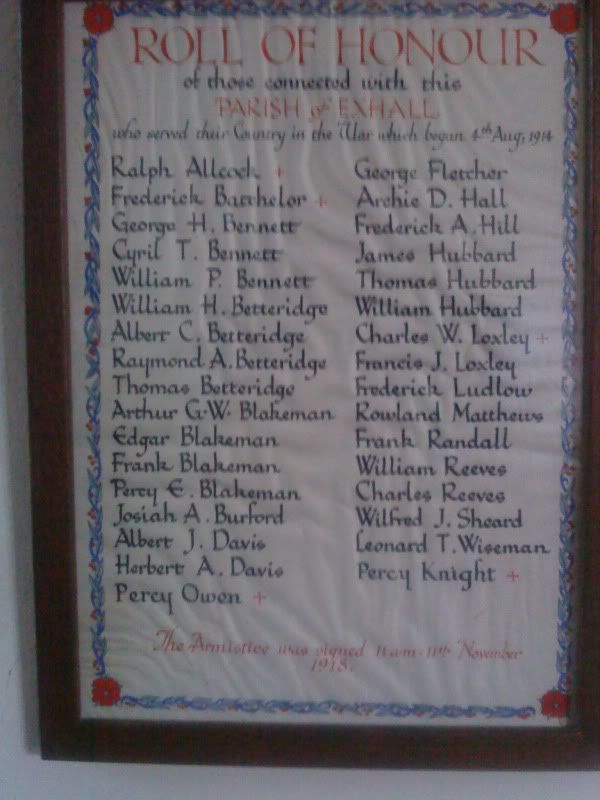 ROLL OF HONOUR
of those connected with this
PARISH of EXHALL
who served their Country in the War which began 4th Aug, 1914
Ralph Allcock +
Frederick Batchelor +
George H. Bennett
Cyril T. Bennett
William P. Bennett
William H. Betteridge
Albert C. Betteridge
Raymond A. Betteridge
Thomas Betteridge
Arthur G.W. Blakeman
Edgar Blakeman
Frank Blakeman
Percy E. Blakeman
Josiah A. Burford
Albert J. Davis
Herbert A. Davis
Percy Owen +
George Fletcher
Archie D. Hall
Frederick A. Hill
James Hubbard
Thomas Hubbard
William Hubbard
Charles W. Loxley +
Francis J. Loxley
Frederick Ludlow
Rowland Matthews
Frank Randall
William Reeves
Charles Reeves
Wilfred J. Sheard
Leonard T. Wiseman
Percy Knight +
The Armistice was signed 11am-11th November
1918.